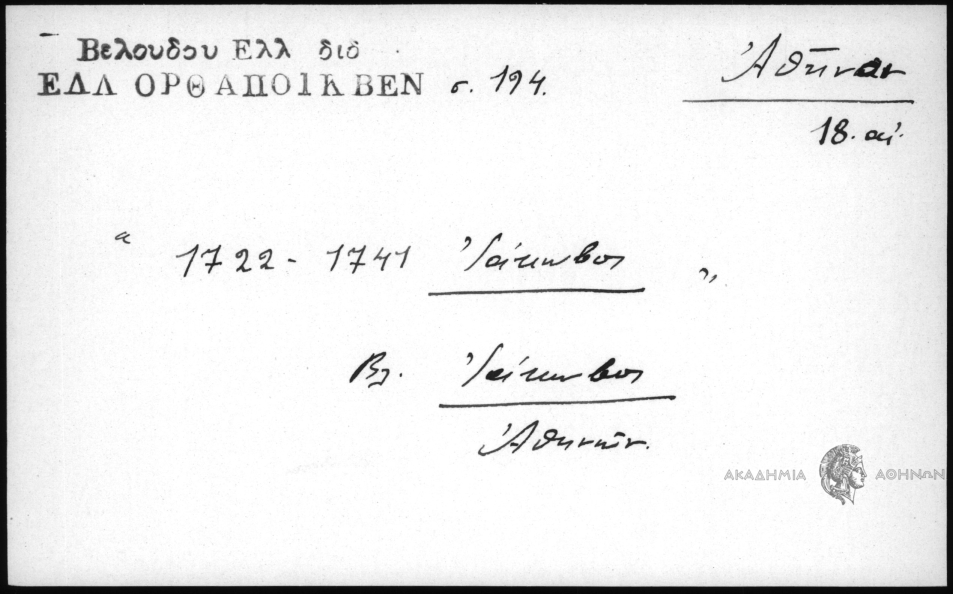 Βελουδου Ελλ διδ
ΕΛΛ ΟΡΘ ΑΠΟΙΚ ΒΕΝ σ. 194.
Ἀθῆναι
18. αἰ.
" 1722 - 1741 Ἰάκωβος "
Βλ. Ἰάκωβος
Ἀθηνῶν.
ΑΚΑΔΗΜΙΑ ΑΘΗΝΩΝ